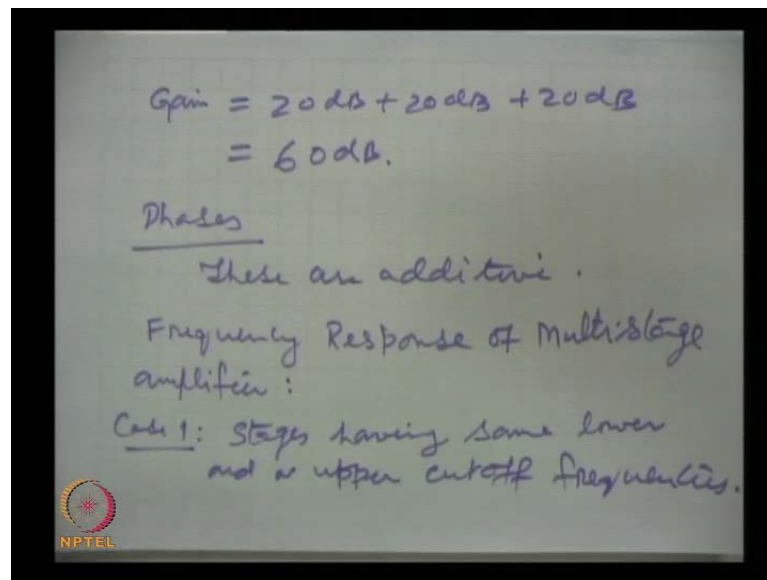 Gain = 20dB + 20dB + 20dB
= 60dB.
Phases
These are additive.
Frequency Response of Multistage
amplifier:
Case 1: Stages having same lower
and upper cutoff frequencies.
NPTEL